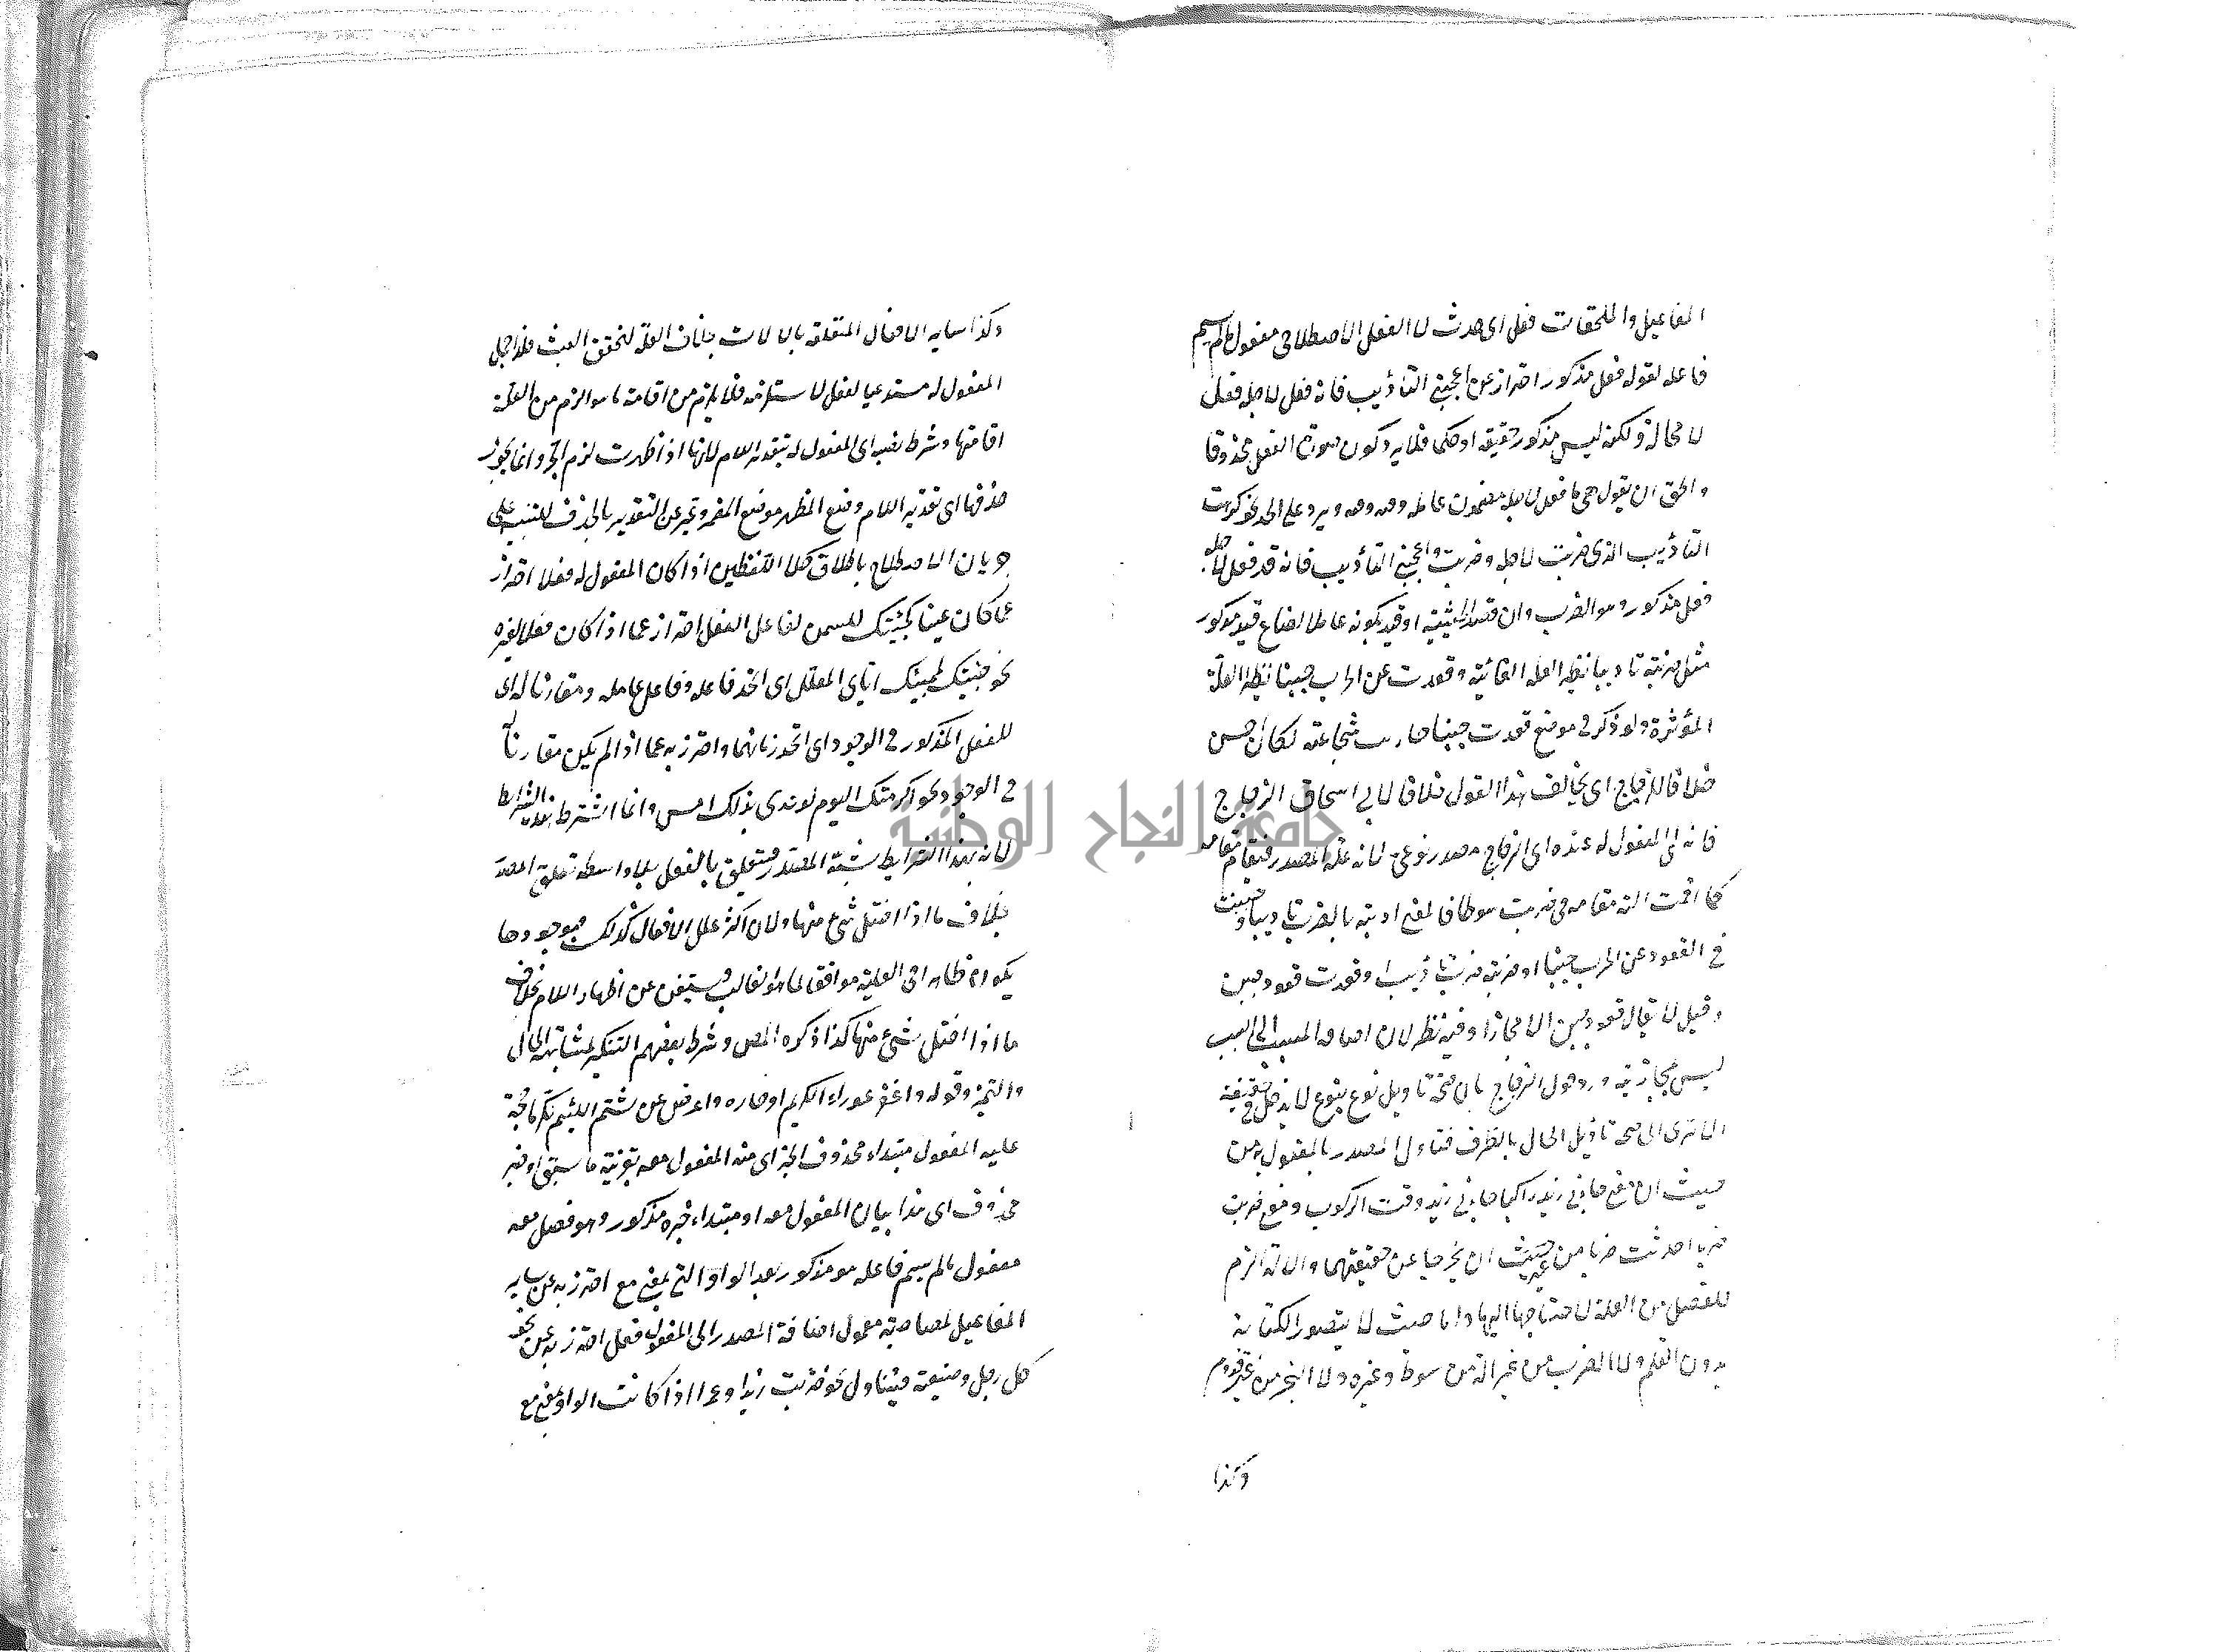 المفاعيل والملحقات فعل اى حدث لا الفعل الاصطلاحى مفعول مالم يسم
فاعله لقوله فعل مذكور احتراز عن اعجبنى التأديب فانه فعل لاجله فعل
لا محالة ولكنه ليس مذكور حقيقة او حكما فلا يرد كون صورة الفعل محذوفا
والحق ان يقول هى ما فعل لاجله مضمون عامله ويرد على الحد نحو كرهت
التأديب الذى ضربت لاجله وضربت واعجبنى التأديب فانه قد فعل لاجله
فعل مذكور وهو الضرب وان قصد الحيثية او قيد بكونه عاملا لضاع قيد مذكور
مثل ضربته تاديبا نظير العلة الغائية وقعدت عن الحرب جبنا نظير العلة
المؤثرة ولو ذكر فى موضع قعدت جبنا حارب شجاعة لكان احسن
خلافا للزجاج اى يخالف هذا القول خلافا لابى اسحاق الزجاج
فانه اى المفعول له عنده اى الزجاج مصدر نوعى لانه علة المصدر فيقام مقامه
كما اقمت الة مقامه فى ضربت سوطا فالمعنى ادبته بالضرب تاديبا وجبنت
فى القعود عن الحرب جبنا او ضربته ضرب تأديب وقعدت قعود جبن
وقيل لا يقال قعود جبن الا مجازا وفيه نظر لان اضافة المسبب الى السبب
ليس مجازية ورد قول الزجاج بان صحة تاويل نوع بنوع لا يدخل فى حقيقته
الا ترى الى صحة تاويل الحال بالظرف
حيث ان معنى جاءنى زيد راكبا جاءنى زيد وقت الركوب ومعنى ضربت
ضربا احدثت ضربا من غير ان يخرجا عن حقيقتهما والالة الزم
للفعل من العلة لاحتياجها اليها دائما حيث لا يتصور الكتابة
بدون القلم ولا الضرب من غير الة من سوط وغيره ولا النجر من غير قدوم
وكذا
وكذا ساير الافعال المتعلقة بالالات بخلاف العلة لتحقق العبث فلذا جعل
المفعول له مستدعيا لفعل لا ستلزمه فلا يلزم من اقامة ما هو الزم من العلة
اقامتها وشرط نصبه اى المفعول له تقدير اللام لانها اذا ظهرت لزم الجر وانما يجوز
حذفها اى تقدير اللام وضع المظهر موضع المضمر وعبر عن التقدير بالحذف للتنبيه على
جريان الاصطلاح باطلاق كلا اللفظين اذا كان المفعول له فعلا احتراز
عما كان عينا كجئتك للسمن لفاعل الفعل احتراز عما اذا كان فعلا لغيره
نحو جئتك لمجيئك اياى المعلل اى اتحد فاعله وفاعل عامله ومقارنا له اى
للفعل المذكور فى الوجود اى اتحد زمانهما واحترز به عما اذا لم يكن مقارنا
فى الوجود نحو اكرمتك اليوم لوعدى بذلك امس وانما اشترط هذه الشرائط
لانه بهذا الشرايط يشبه المصدر فتعلق بالفعل بلا واسطة تعلق المصدر
بخلاف ما اذا اختل شئ منها ولان اكثر علل الافعال كذلك فبوجودها
يكون ظاهرا فى العلية موافقا لما هو الغالب فيستغنى عن اظهار اللام بخلاف
ما اذا اختل شئ منها كذا ذكره المص وشرط بعضهم التنكير لمشابهة الحال
والتميز وقوله واغفر عوراء الكريم ادخاره واعرض عن شتم اللئيم تكرما حجة
عليه المفعول مبتداء محذوف الخبر اى منه المفعول معه بقرينة ما سبق او خبر
محذوف اى هذا بيان المفعول معه او مبتداء خبره مذكور وهو فصل معه
مفعول مالم يسم فاعله هو مذكور بعد الواو التى بمعنى مع احترز به عن ساير
المفاعيل لمصاحبة معمول اضافة المصدر الى المفعول فعل احترز به عن نحو
كل رجل وضيعته فيتناول نحو ضربت زيدا وعمرا اذا كانت الواو بمعنى مع
جامعة النجاح الوطنية